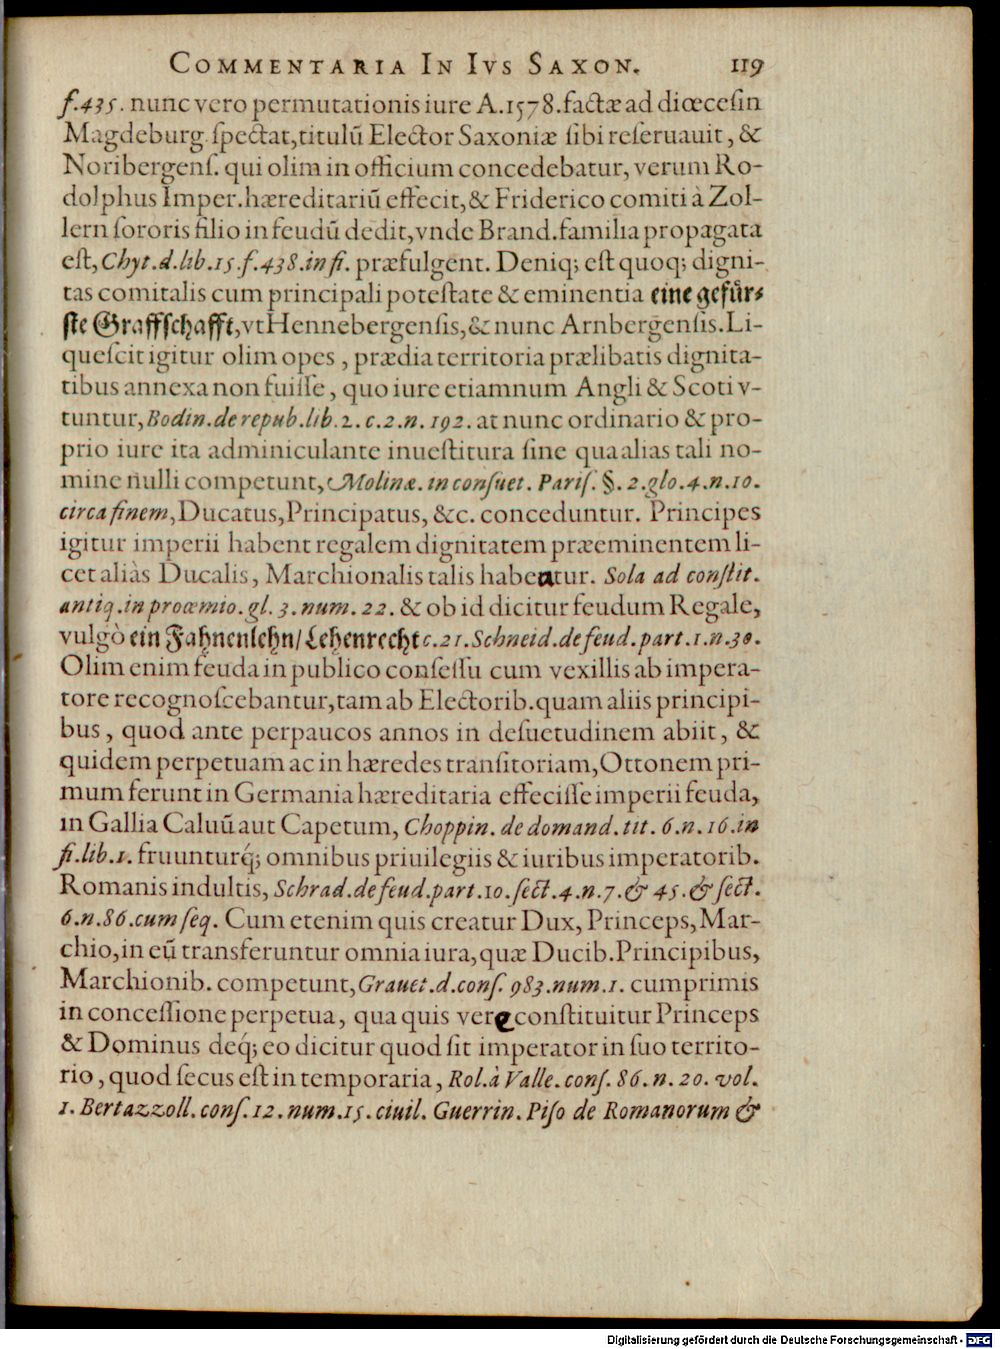 COMMENTARIA IN IVS SAXON. 119
f.435. nunc vero permutationis iure A.1578. factæ ad diœcesin
Magdeburg. spectat, titulũ Elector Saxoniæ sibi reseruauit, &
Noribergens. qui olim in officium concedebatur, verum Ro-
dolphus Imper. hæreditariũ effecit, & Friderico comiti à Zol-
lern sororis filio in feudũ dedit, vnde Brand. familia propagata
est, Chyt. d. lib. 15. f. 438. in fi. præfulgent. Deniq; est quoq; digni-
tas comitalis cum principali potestate & eminentia eine gefůr-
ste Graffschafft, vt Hennebergensis, & nunc Arnbergensis. Li-
quescit igitur olim opes, prædia territoria prælibatis dignita-
tibus annexa non fuisse, quo iure etiamnum Angli & Scoti v-
tuntur, Bodin. de repub. lib. 2. c. 2. n. 192. at nunc ordinario & pro-
prio iure ita adminiculante inuestitura sine qua alias tali no-
mine nulli competunt, Molinæ. in consuet. Paris. §. 2. glo. 4. n. 10.
circa finem, Ducatus, Principatus, &c. conceduntur. Principes
igitur imperii habent regalem dignitatem præeminentem li-
cet aliàs Ducalis, Marchionalis talis habeatur. Sola ad constit.
antiq. in proœmio. gl. 3. num. 22. & ob id dicitur feudum Regale,
vulgò ein Fahnenlehn/ Lehenrecht c. 21. Schneid. de feud. part. 1. n. 30.
Olim enim feuda in publico consessu cum vexillis ab impera-
tore recognoscebantur, tam ab Electorib. quam aliis principi-
bus, quod ante perpaucos annos in desuetudinem abiit, &
quidem perpetuam ac in hæredes transitoriam, Ottonem pri-
mum ferunt in Germania hæreditaria effecisse imperii feuda,
in Gallia Caluũ aut Capetum, Choppin. de domand. tit. 6. n. 16. in
fi. lib. 1. fruunturq́; omnibus priuilegiis & iuribus imperatorib.
Romanis indultis, Schrad. de feud. part. 10. sect. 4. n. 7. & 45. & sect.
6. n. 86. cum seq. Cum etenim quis creatur Dux, Princeps, Mar-
chio, in eũ transferuntur omnia iura, quæ Ducib. Principibus,
Marchionib. competunt, Grauet. d. cons. 983. num. 1. cumprimis
in concessione perpetua, qua quis vere constituitur Princeps
& Dominus deq́; eo dicitur quod sit imperator in suo territo-
rio, quod secus est in temporaria, Rol. à Valle. cons. 86. n. 20. vol.
1. Bertazzoll. cons. 12. num. 15. ciuil. Guerrin. Piso de Romanorum &
Digitalisierung gefördert durch die Deutsche Forschungsgemeinschaft - DFG